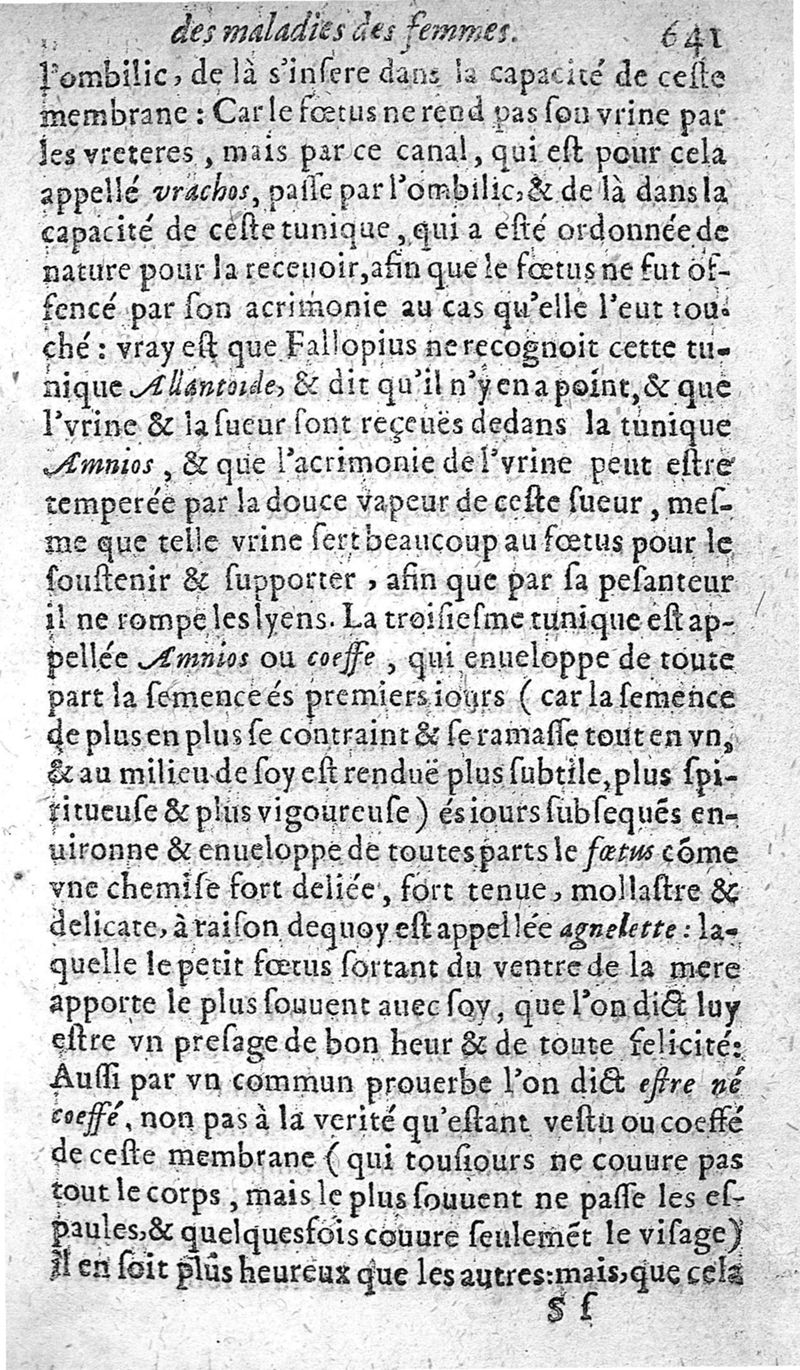 des maladies des femmes. 641
l'ombilic, de là s'inſere dans la capacité de ceſte
membrane : Car le fœtus ne rend pas ſou vrine par
les vreteres, mais par ce canal, qui eſt pour cela
appellé vrachos, paſſe par l'ombilic, & de là dans la
capacité de ceſte tunique, qui a eſté ordonnée de
nature pour la receuoir, afin que le fœtus ne fut of-
fencé par ſon acrimonie au cas qu'elle l'eut tou-
ché : vray eſt que Fallopius ne recognoit cette tu-
nique Allantoide, & dit qu'il n'y en a point, & que
l'vrine & la ſueur ſont reçeuës dedans la tunique
Amnios, & que l'acrimonie de l'vrine peut eſtre
temperée par la douce vapeur de ceſte ſueur, meſ-
me que telle vrine ſert beaucoup au fœtus pour le
ſouſtenir & ſupporter, afin que par ſa peſanteur
il ne rompe les lyens. La troiſieſme tunique eſt ap-
pellée Amnios ou coeffe, qui enueloppe de toute
part la ſemence és premiers iours (car la ſemence
de plus en plus ſe contraint & ſe ramaſſe tout en vn,
& au milieu de ſoy eſt renduë plus ſubtile, plus ſpi-
ritueuſe & plus vigoureuſe) és iours ſubſequẽs en-
uironne & enueloppe de toutes parts le fœtus cõme
vne chemiſe fort deliée, fort tenue, mollaſtre &
delicate, à raiſon dequoy eſt appellée agnelette : la-
quelle le petit fœtus ſortant du ventre de la mere
apporte le plus ſouuent auec ſoy, que l'on dict luy
eſtre vn preſage de bon heur & de toute felicité:
Auſſi par vn commun prouerbe l'on dict eſtre né
coeffé, non pas à la verité qu'eſtant veſtu ou coeffé
de ceſte membrane (qui touſiours ne couure pas
tout le corps, mais le plus ſouuent ne paſſe les eſ-
paules, & quelquesfois couure ſeulemẽt le viſage)
il en ſoit plus heureux que les autres: mais, que cela
S ſ